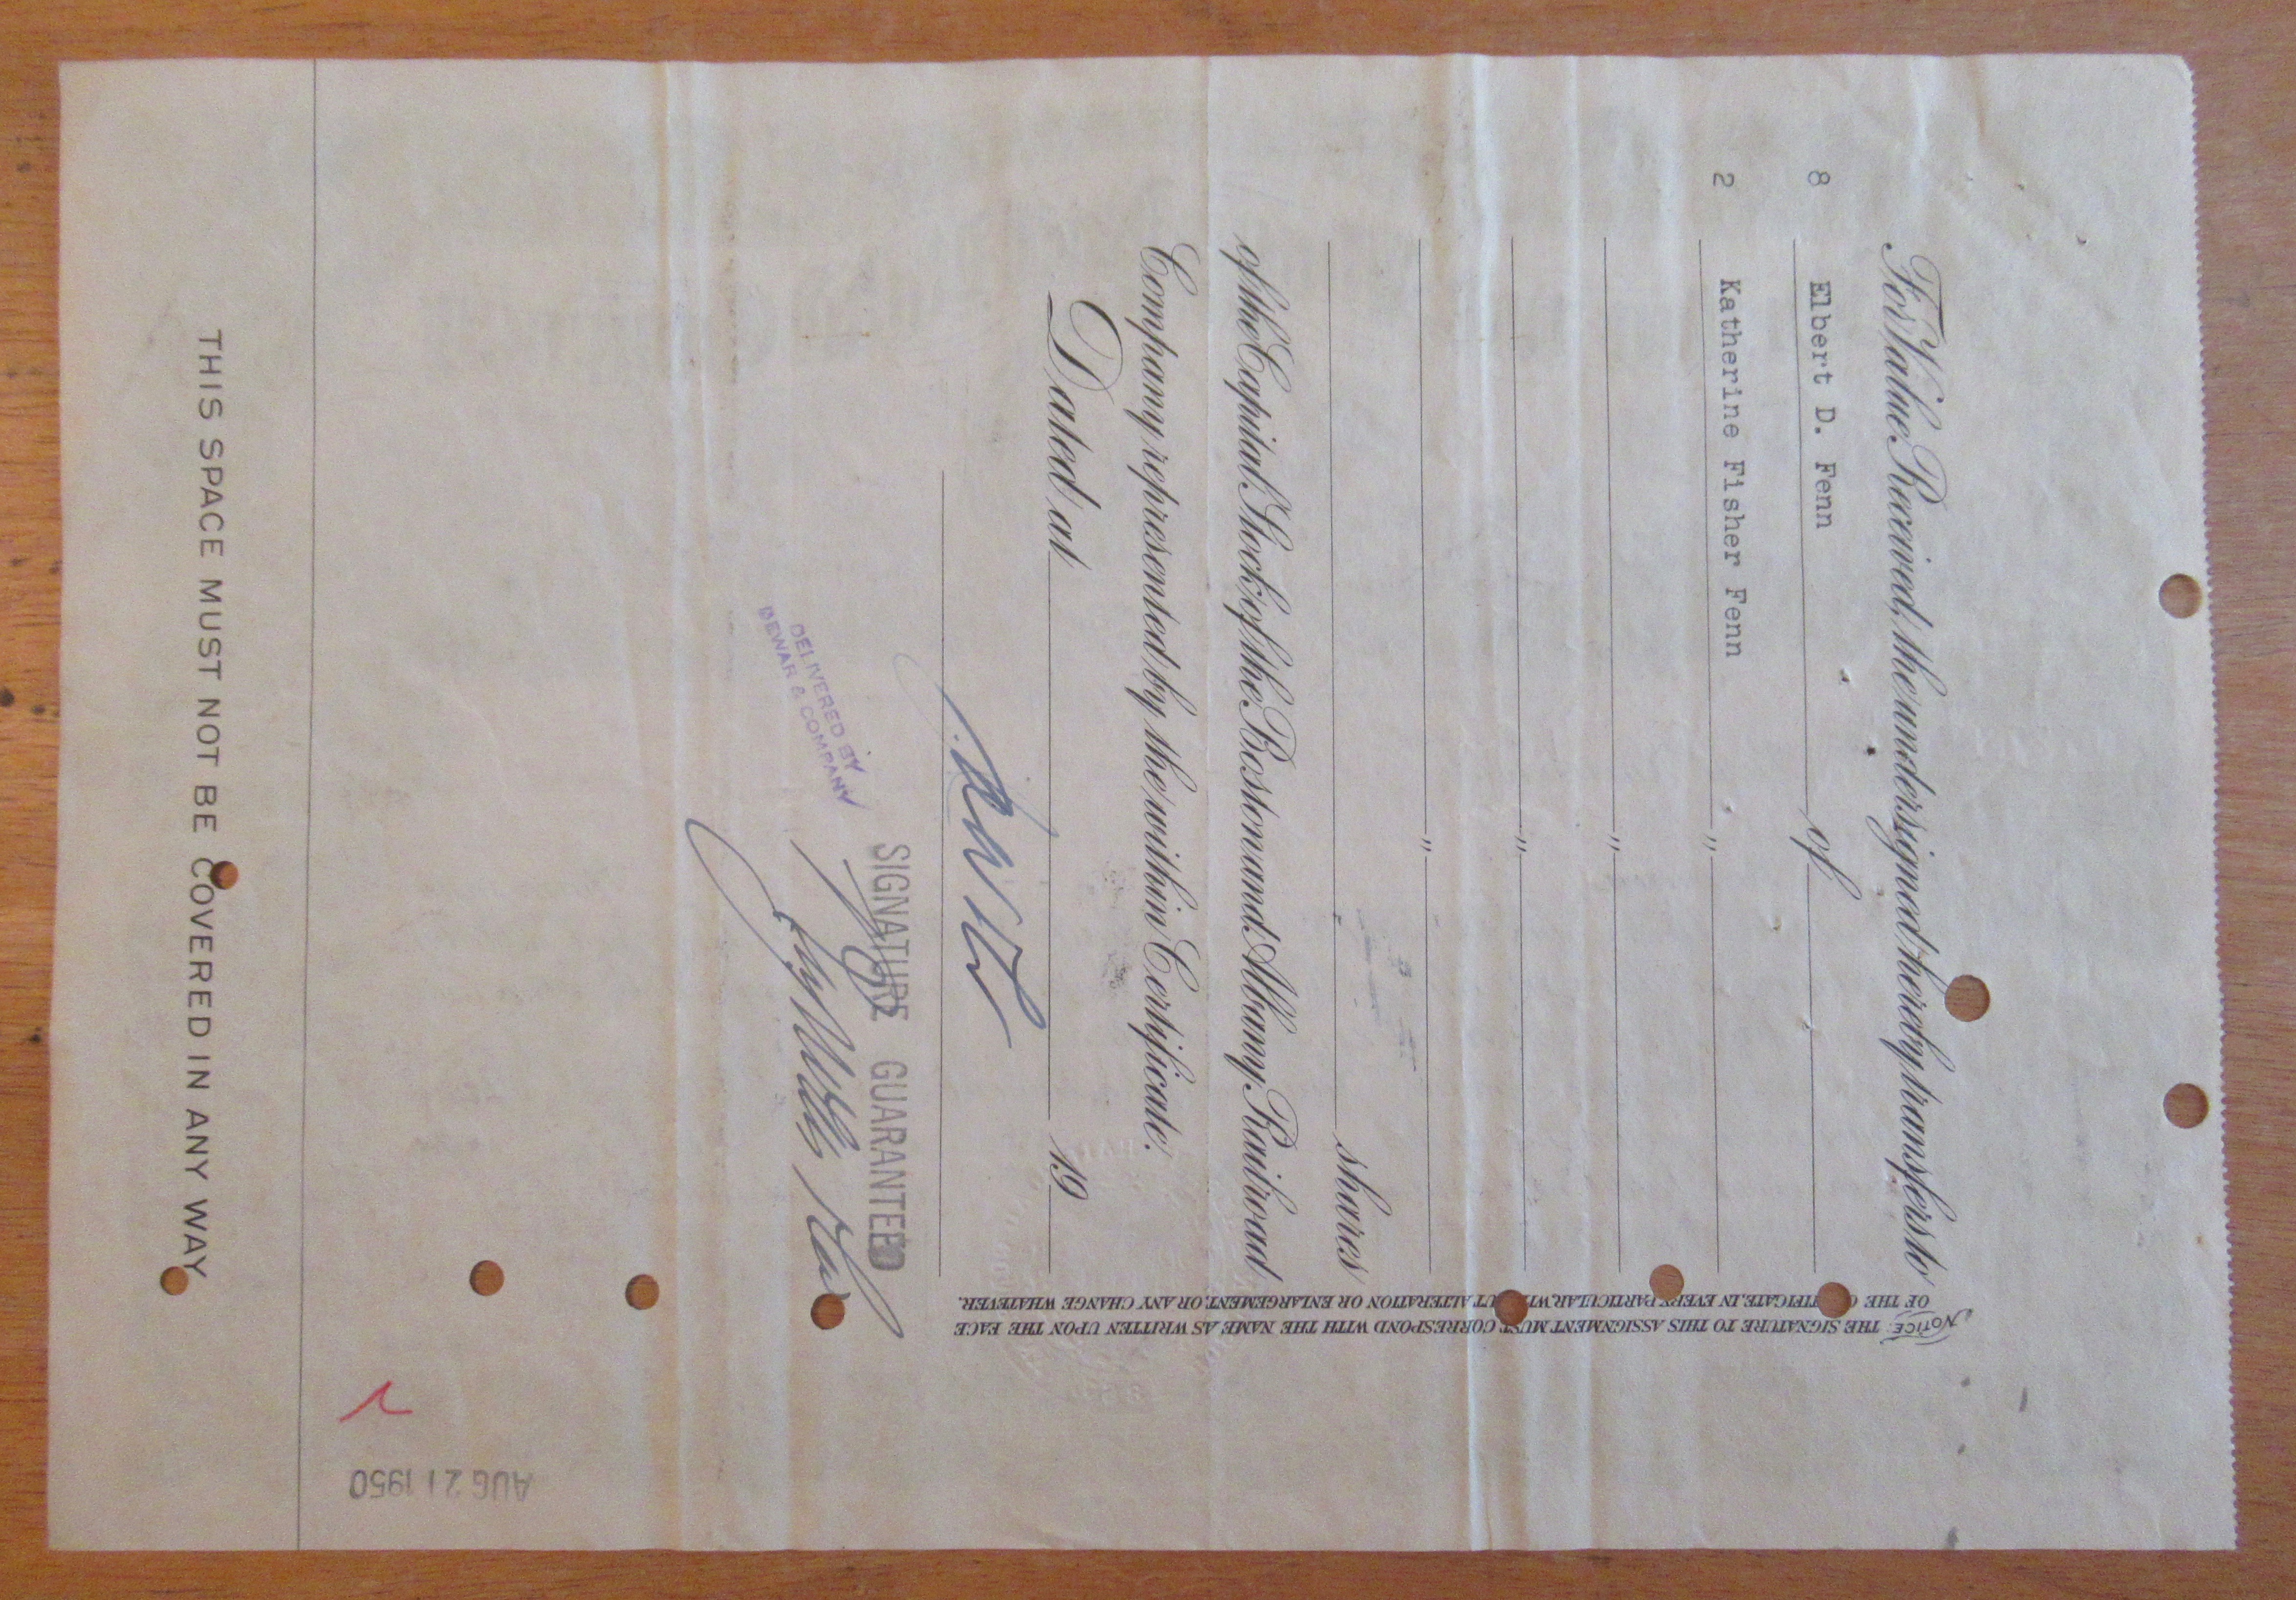 For Value Received, the undersigned hereby transfers to
8 Elbert D. Fenn of
2 Katherine Fisher Fenn "
"
"
"
shares
of the Capital Stock of the Boston and Albany Railroad
Company represented by the within Certificate.
Dated at 19
SIGNATURE GUARANTEED
DELIVERED BY
DEWAR & COMPANY
THIS SPACE MUST NOT BE COVERED IN ANY WAY
NOTICE: THE SIGNATURE TO THIS ASSIGNMENT MUST CORRESPOND WITH THE NAME AS WRITTEN UPON THE FACE
OF THE CERTIFICATE, IN EVERY PARTICULAR, WITHOUT ALTERATION OR ENLARGEMENT, OR ANY CHANGE WHATEVER.
AUG 21 1950